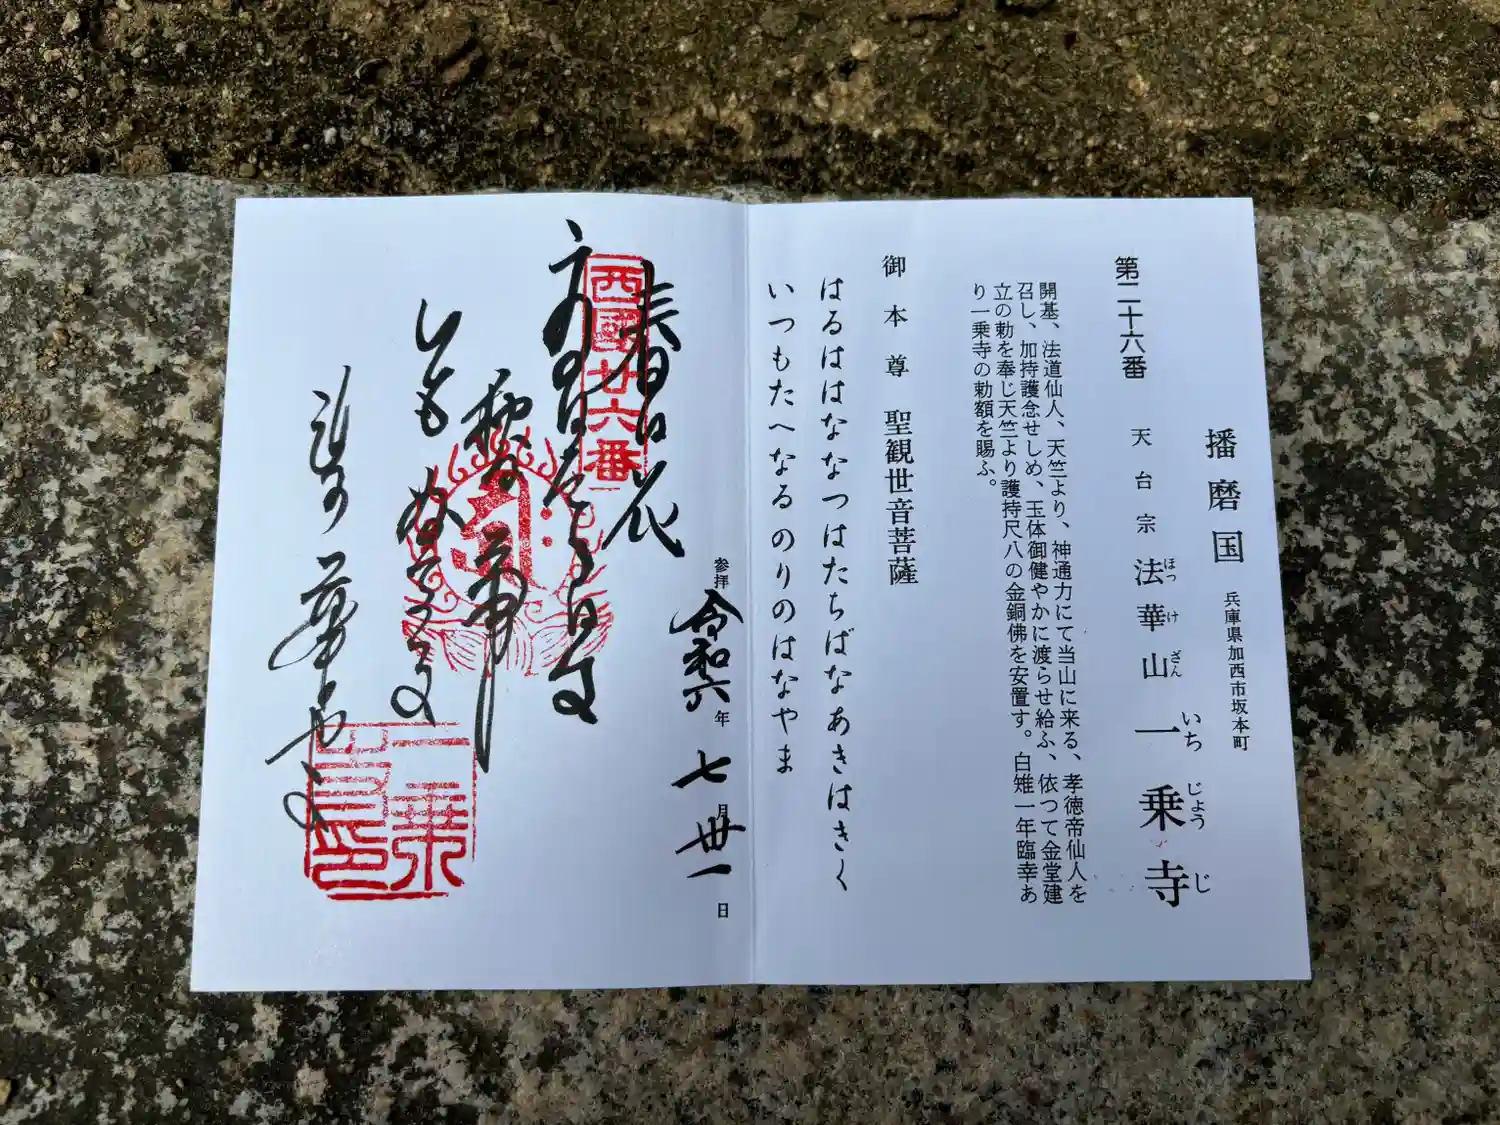 播磨国 兵庫県加西市坂本町
第二十六番 天台宗 法華山 一乗寺
ほっ け ざん いち じょう じ
開基、法道仙人、天竺より、神通力にて当山に来る、孝徳帝仙人を
召し、加持護念せしめ、玉体御健やかに渡らせ給ふ、依つて金堂建
立の勅を奉じ天竺より護持尺八の金銅佛を安置す。白雉一年臨幸あ
り一乗寺の勅額を賜ふ。
御本尊 聖観世音菩薩
はるははななつはたちばなあきはきく
いつもたへなるのりのはなやま
参拝 令和六年 七月 卅一日
西國廿六番
春は花
夏は
橘
秋は菊
いつも
法の華や
一乗